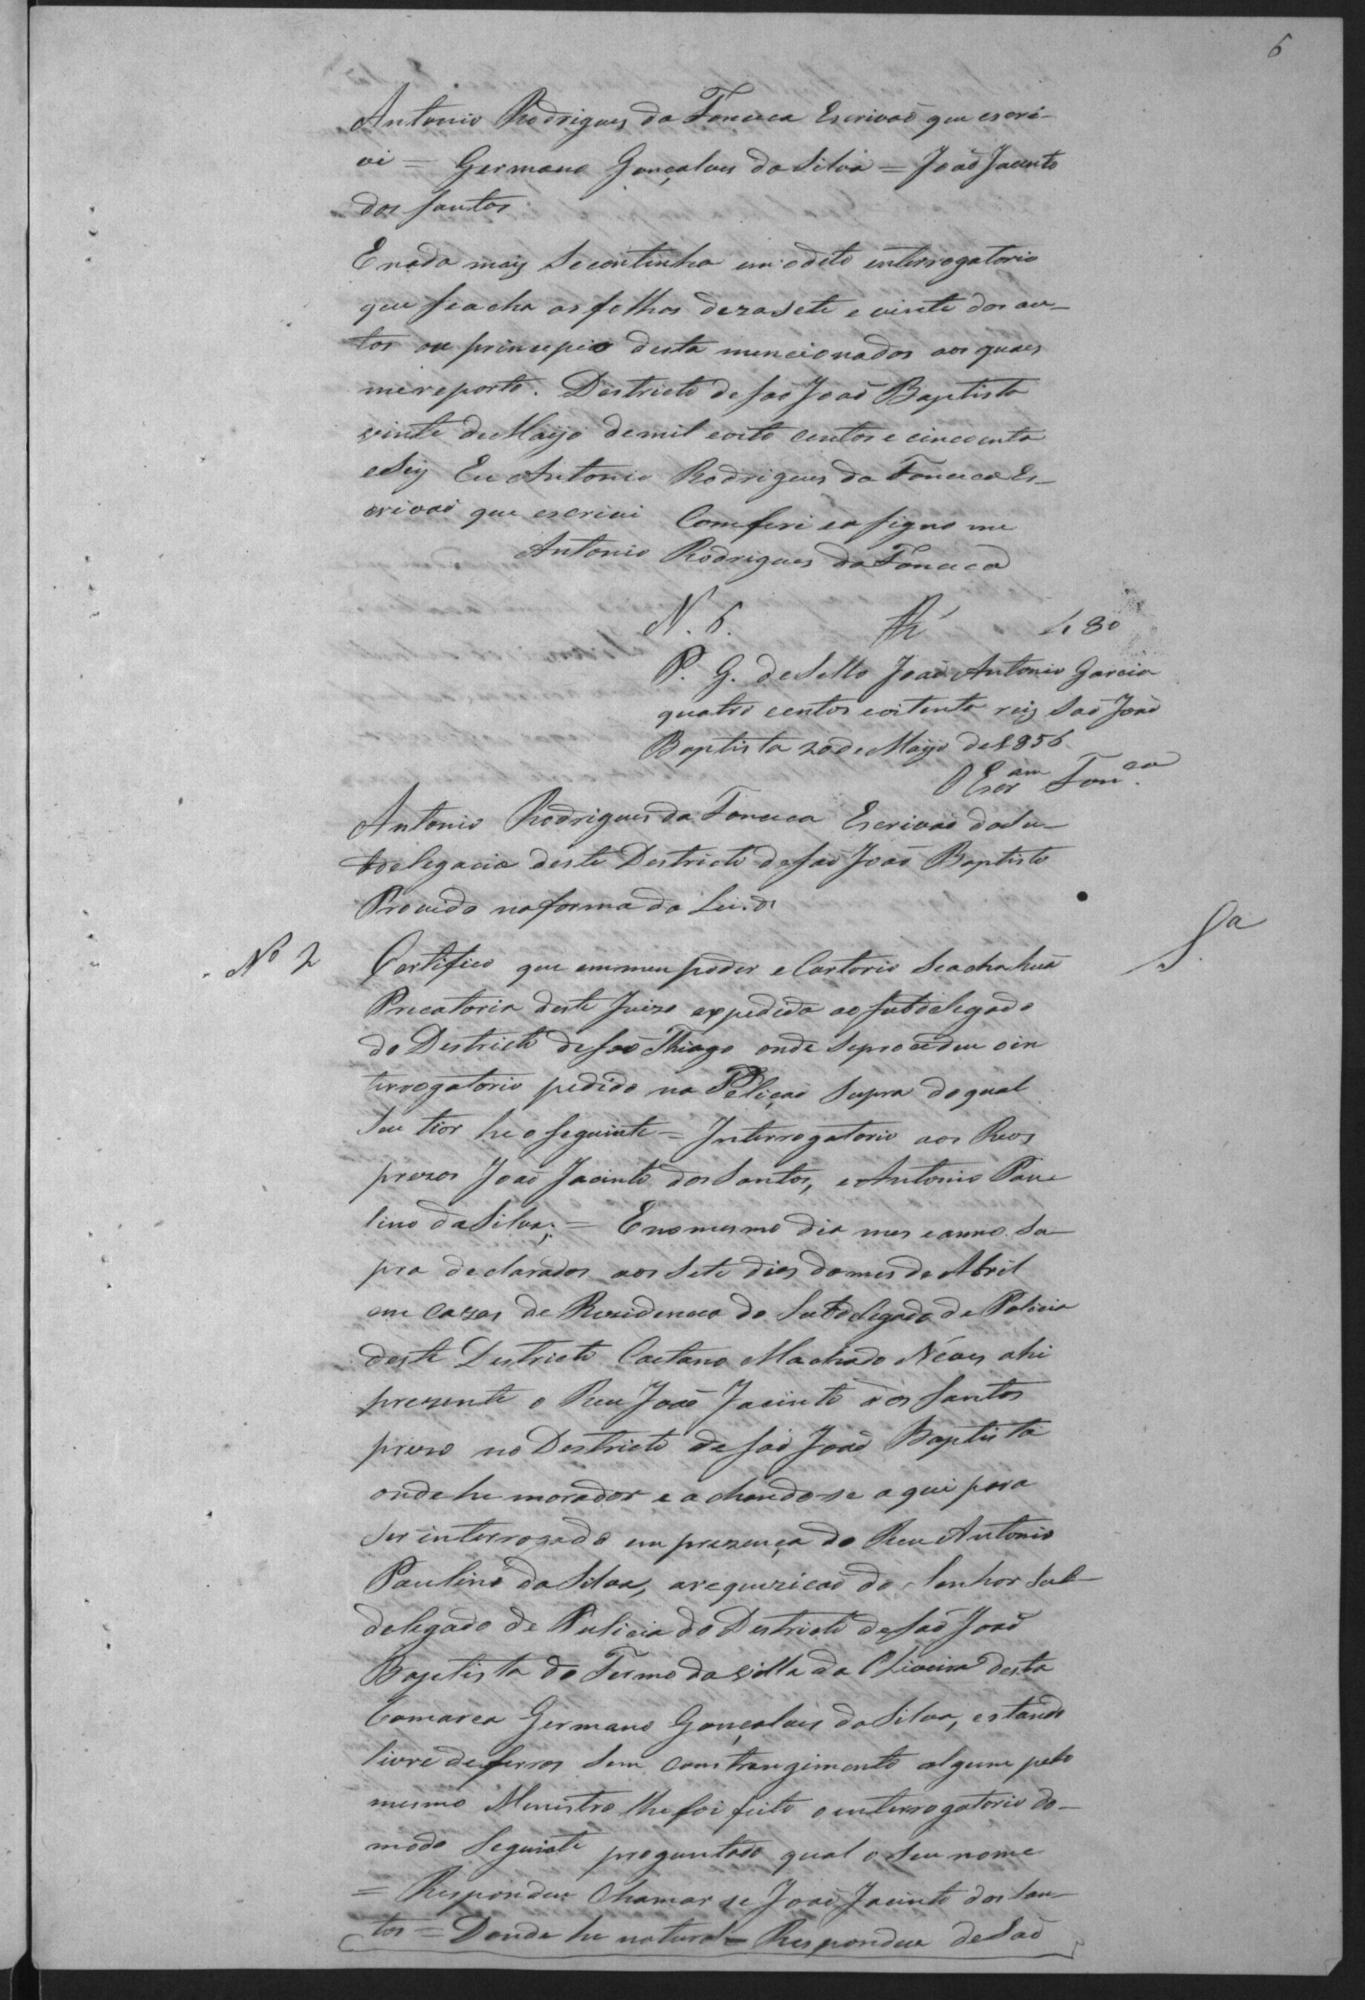 6
Antonio Rodrigues da Fonceca Escrivaõ que escre-
vi = Germano Gonçalves da Silva = Joaõ Jacinto
dos Santos.
E nada mais Secontinha em odito interrogatorio
que Seacha as folhas dezasete e vinte dos au-
tos ao principio desta mencionados aos quaes
mereporto. Destricto de Saõ Joaõ Baptista
vinte de Maijo demil eoito centos e cincoenta
eSeis Eu Antonio Rodrigues da Fonceca Es-
crivaõ que escrivi Comferi eaSigno me
Antonio Rodrigues da Fonceca
N. 6. 480
P. G. deSello Joaõ Antonio Garcia
quatro centos eoitenta reis Saõ Joaõ
Baptista 20 de Maijo de 1856
O Escram Fonca
Antonio Rodrigues da Fonceca Escrivaõ daSu-
bdelegacia deste Destricto de Saõ Joaõ Baptista
Provido naforma da Lei. &
Sa
No 2 Certifico que emmeu poder e Cartorio Seacha hua
Precatoria deste Juizo expedida ao Subdelegado
do Destricto de Saõ Thiago onde Seprocedeu oin
terrogatorio pedido na Petiçaõ Supra doqual
Seu tior he o Seguinte = Interrogatorio aos Reos
prezos Joaõ Jacinto dos Santos, e Antonio Pau
lino da Silva; = E nomesmo dia mes e anno Su-
pra declarados aos Sete dias domes de Abril
em cazas de Rezidencia do Subdelegado de Policia
deste Destricto Caetano Machado Neves ahi
prezente o Reu Joaõ Jacinto dos Santos
prezo no Destricto de Saõ Joaõ Baptista
onde he morador e achando-se aqui para
Ser interrogado em prezença do Reu Antonio
Paulino da Silva, arequeziçaõ do Senhor Sub-
delegado de Pulicia do Destricto de Saõ Joaõ
Baptista do Termo da villa da Oliveira desta
Comarca Germano Gonçalves da Silva, estando
livre de ferros Sem constrangimento algum pelo
mesmo Menistro lhe foi feito o interrogatorio do-
modo Seguinte preguntado qual o Seu nome
= Respondeu Chamar se Joaõ Jacinto dos San-
tos = Donde he natural = Respondeu de Saõ